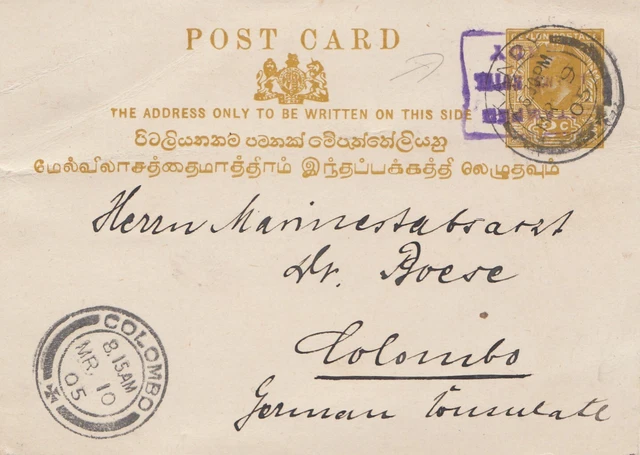 POST CARD
CEYLON POSTAGE
THE ADDRESS ONLY TO BE WRITTEN ON THIS SIDE
ලිපිනය පමණක් මේපැත්තේලියනු
மேல்விலாசத்தைமாத்திரம் இந்தப்பக்கத்தி லெழுதவும்
Herrn Marinestabsarzt
Dr. Boese
Colombo
German Consulate
COLOMBO
8.15AM
MR. 10
05